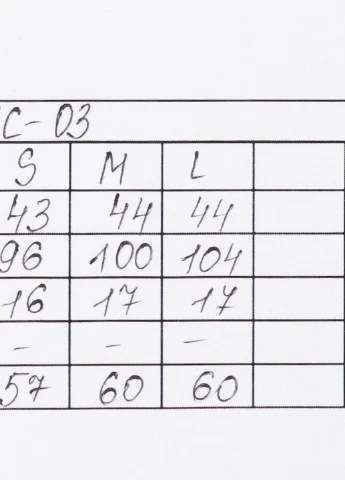 С-03
S M L
43 44 44
96 100 104
16 17 17
- - -
57 60 60